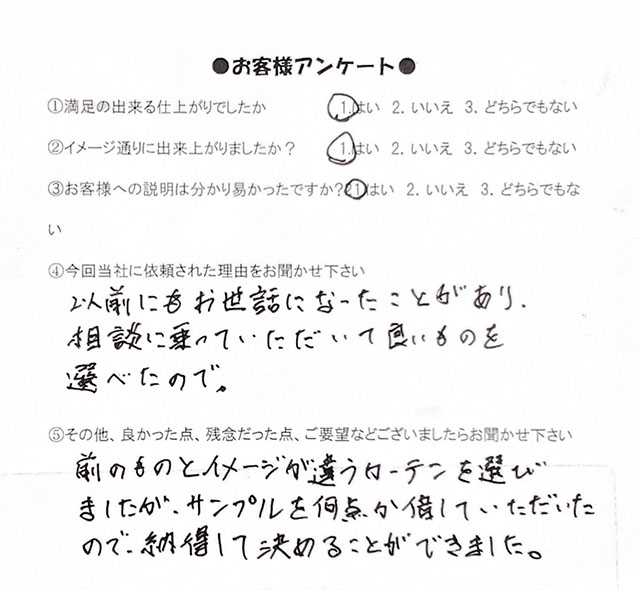 ●お客様アンケート●
①満足の出来る仕上がりでしたか 1.はい 2. いいえ 3. どちらでもない
②イメージ通りに出来上がりましたか？ 1.はい 2. いいえ 3. どちらでもない
③お客様への説明は分かり易かったですか?21はい 2. いいえ 3. どちらでもな
い
④今回当社に依頼された理由をお聞かせ下さい
以前にもお世話になったことがあり、
相談に乗っていただいて良いものを
選べたので。
⑤その他、良かった点、残念だった点、ご要望などございましたらお聞かせ下さい
前のものとイメージが違うカーテンを選び
ましたが、サンプルを何点か借していただいた
ので、納得して決めることができました。